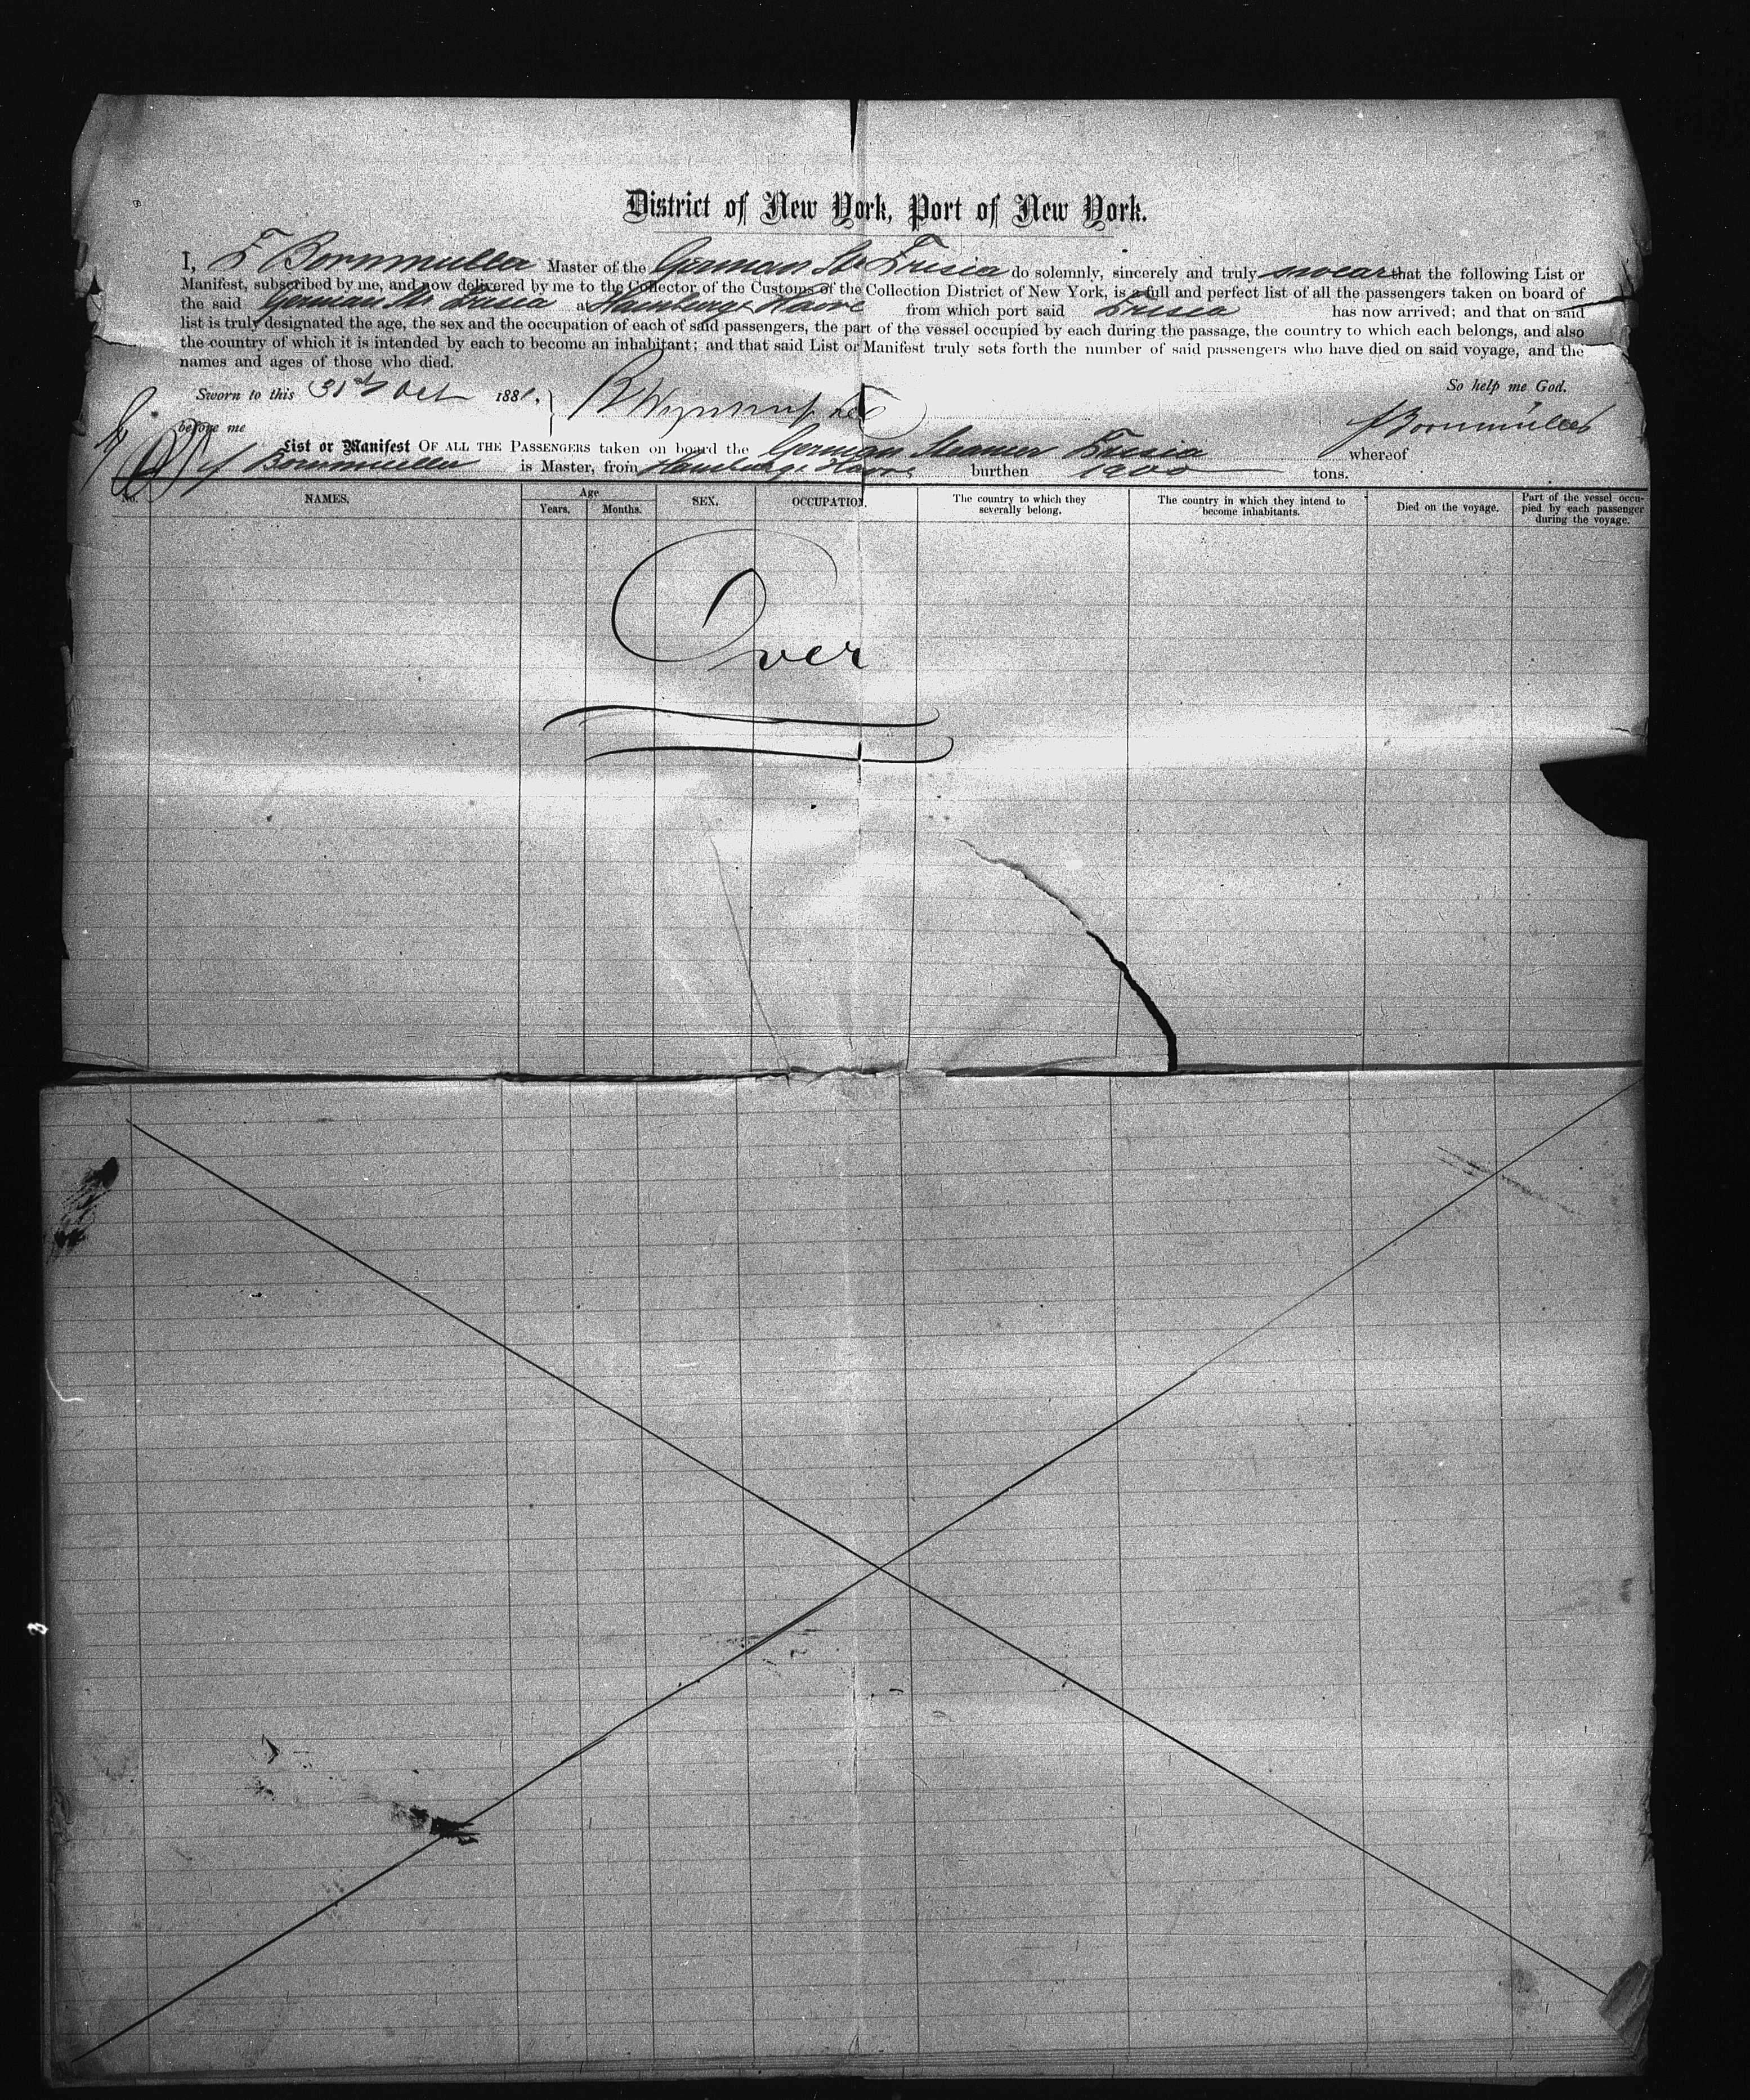 District of New York, Port of New York.
I, F Bornmuller Master of the German Str Frisia do solemnly, sincerely and truly swear that the following List or
Manifest, subscribed by me, and now delivered by me to the Collector of the Customs of the Collection District of New York, is a full and perfect list of all the passengers taken on board of
the said German Str Frisia at Hamburg & Havre from which port said Frisia has now arrived; and that on said
list is truly designated the age, the sex and the occupation of each of said passengers, the part of the vessel occupied by each during the passage, the country to which each belongs, and also
the country of which it is intended by each to become an inhabitant; and that said List or Manifest truly sets forth the number of said passengers who have died on said voyage, and the
names and ages of those who died.
So help me God.
Sworn to this 31st Oct 1881,
before me
F Bornmüller
List or Manifest OF ALL THE PASSENGERS taken on board the German Steamer Frisia whereof
Bornmuller is Master, from Hamburg & Havre burthen tons.
No. NAMES. Age Years. Months. SEX. OCCUPATION. The country to which they severally belong. The country in which they intend to become inhabitants. Died on the voyage. Part of the vessel occupied by each passenger during the voyage.
Over